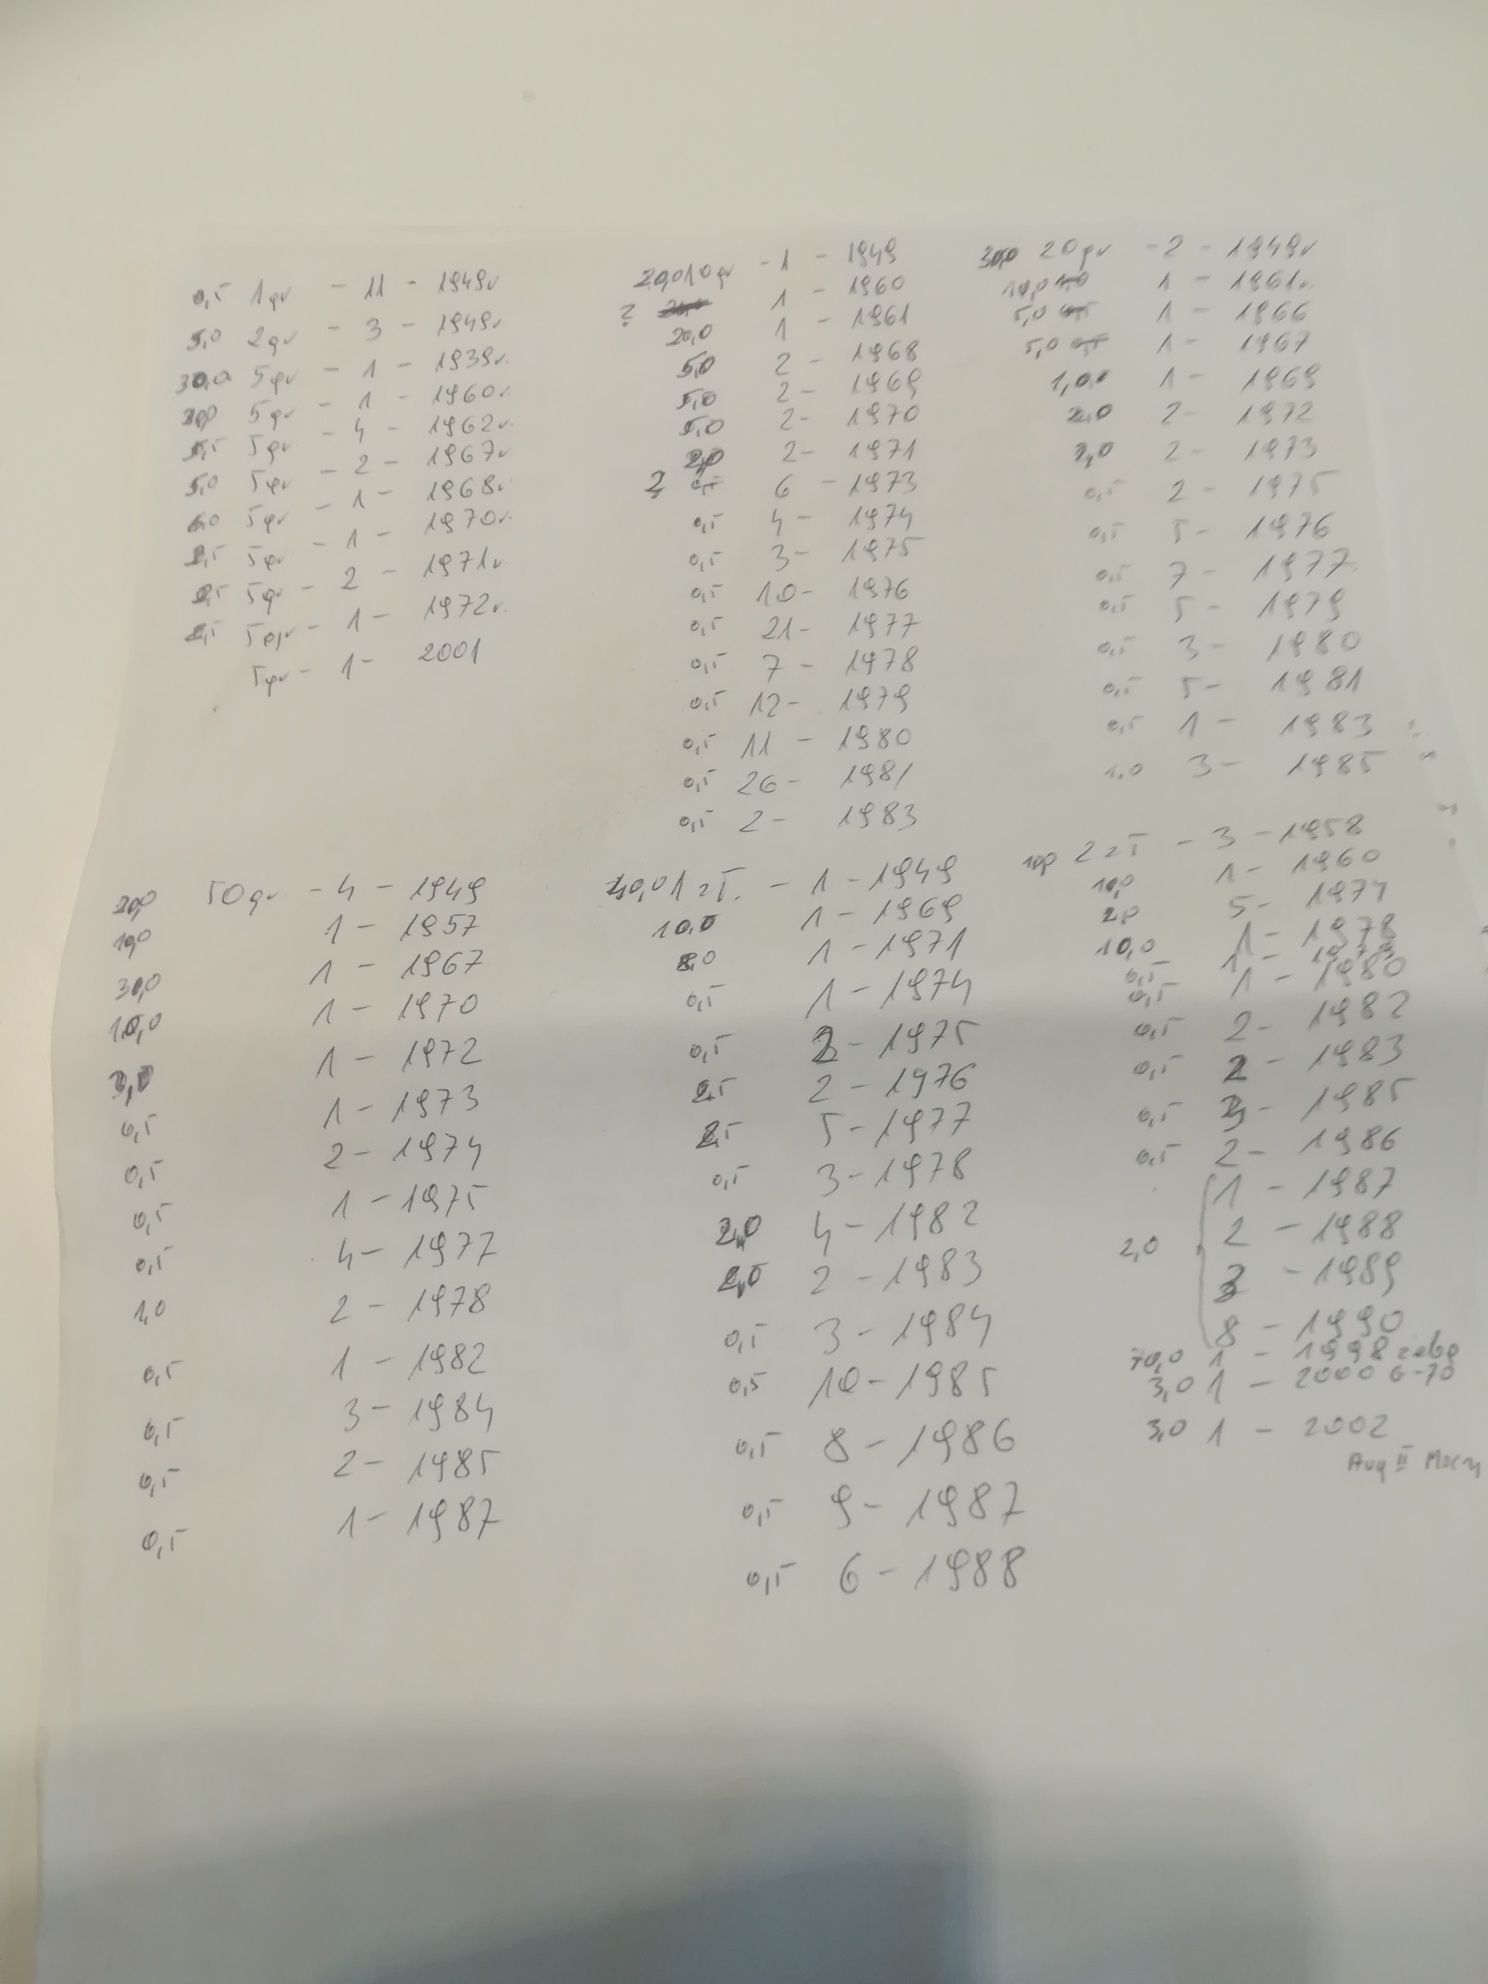 0,5 1gr - 11 - 1949r
5,0 2gr - 3 - 1949r
30,0 5gr - 1 - 1939r.
5gr - 1 - 1960r.
5gr - 4 - 1962r.
5,0 5gr - 2 - 1967r
5gr - 1 - 1968r
5gr - 1 - 1970r.
5gr - 2 - 1971r
5gr - 1 - 1972r.
5gr - 1 - 2001
20,0 10gr - 1 - 1949
? 1 - 1960
20,0 1 - 1961
5,0 2 - 1968
5,0 2 - 1969
5,0 2 - 1970
2,0 2 - 1971
2 0,5 6 - 1973
0,5 4 - 1974
0,5 3 - 1975
0,5 10 - 1976
0,5 21 - 1977
0,5 7 - 1978
0,5 12 - 1979
0,5 11 - 1980
0,5 26 - 1981
0,5 2 - 1983
30,0 20gr - 2 - 1949r
10,0 1 - 1961r.
5,0 1 - 1966
5,0 1 - 1967
1,00 1 - 1969
2,0 2 - 1972
2 - 1973
0,5 2 - 1975
0,5 5 - 1976
0,5 7 - 1977
0,5 5 - 1979
0,5 3 - 1980
0,5 5 - 1981
0,5 1 - 1983
1,0 3 - 1985
50gr - 4 - 1949
1 - 1957
30,0 1 - 1967
10,0 1 - 1970
3,0 1 - 1972
0,5 1 - 1973
0,5 2 - 1974
0,5 1 - 1975
0,5 4 - 1977
1,0 2 - 1978
0,5 1 - 1982
0,5 3 - 1984
0,5 2 - 1985
0,5 1 - 1987
1 zł. - 1 - 1949
10,0 1 - 1969
8,0 1 - 1971
0,5 1 - 1974
0,5 2 - 1975
2 - 1976
5 - 1977
0,5 3 - 1978
2,0 4 - 1982
2 - 1983
0,5 3 - 1984
0,5 10 - 1985
0,5 8 - 1986
0,5 9 - 1987
0,5 6 - 1988
2 zł - 3 - 1958
10,0 1 - 1960
5 - 1974
10,0 1 - 1978
0,5 1 - 1979
0,5 1 - 1980
0,5 2 - 1982
0,5 2 - 1983
0,5 3 - 1985
0,5 2 - 1986
1 - 1987
2,0 2 - 1988
3 - 1989
8 - 1990
70,0 1 - 1998
3,0 1 - 2000 G-70
3,0 1 - 2002
Aug II Mocny